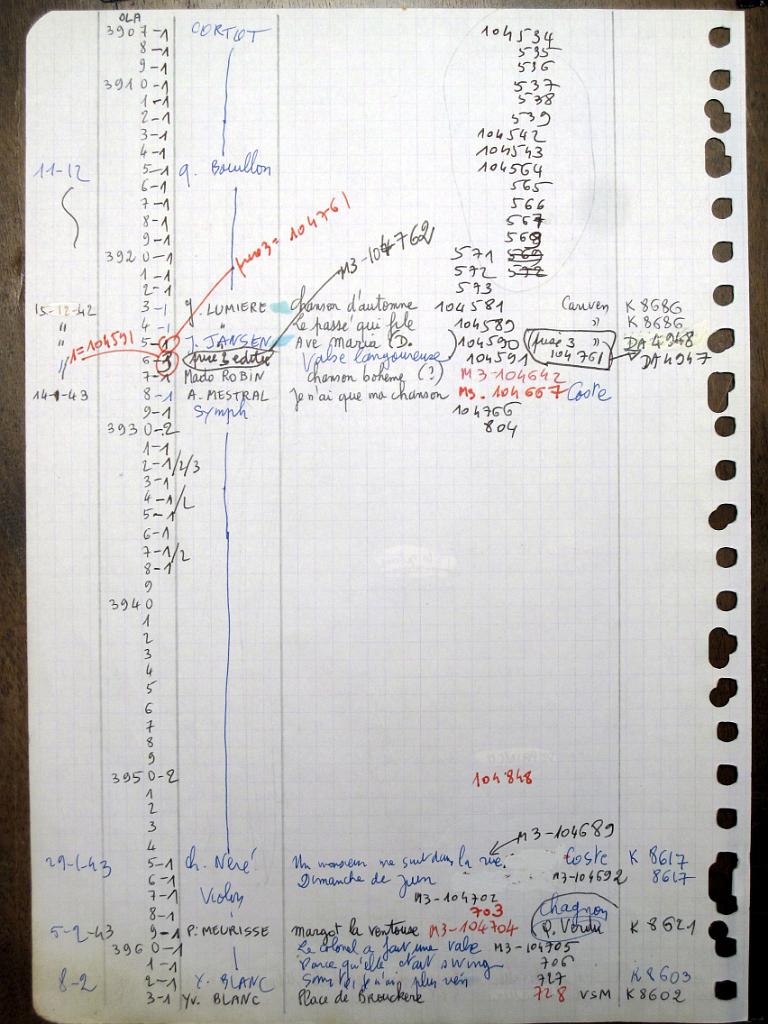 OLA
3907-1 CORTOT 104534
8-1 535
9-1 536
3910-1 537
1-1 538
2-1 539
3-1 104542
4-1 104543
11-12 5-1 G. Bouillon 104564
6-1 565
7-1 566
8-1 567
9-1 568
3920-1 571 569
1-1 572 572
2-1 573
prise 3 = 104761
M3-104762
15-12-42 3-1 J. LUMIERE Chanson d'automne 104581 Cariven K 8686
" 4-1 " Le passé qui file 104589 " K 8686
" 5-1 J. JANSEN Ave Maria (D. ) 104590 prise 3 " DA 4948
1=104591
" 6-3 prise 3 editée Valse langoureuse 104591 104761 DA 4947
7-1 Mado ROBIN chanson bohème (?) M3-104642
14-1-43 8-1 A. MESTRAL Je n'ai que ma chanson M3-104667 Coste
9-1 Symph 104766
3930-2 804
1-1
2-1/2/3
3-1
4-1/2
5-1
6-1
7-1/2
8-1
9
3940
1
2
3
4
5
6
7
8
9
3950-2 104848
1
2
3
4
M3-104689
29-1-43 5-1 Ch. Néré Un monsieur me suit dans la rue. Coste K 8617
6-1 Dimanche de juin M3-104692 8617
7-1 Violon M3-104702
8-1 703 Chagnon
5-2-43 9-1 P. MEURISSE Margot la ventouse M3-104704 P. Verdu K 8621
3960-1 Le Colonel a fait une valse M3-104705
1-1 Parce qu'elle était swing 706
8-2 2-1 Y. BLANC Sans toi je n'ai plus rien 727 K 8603
3-1 Yv. BLANC Place de Brouckère 728 VSM K 8602